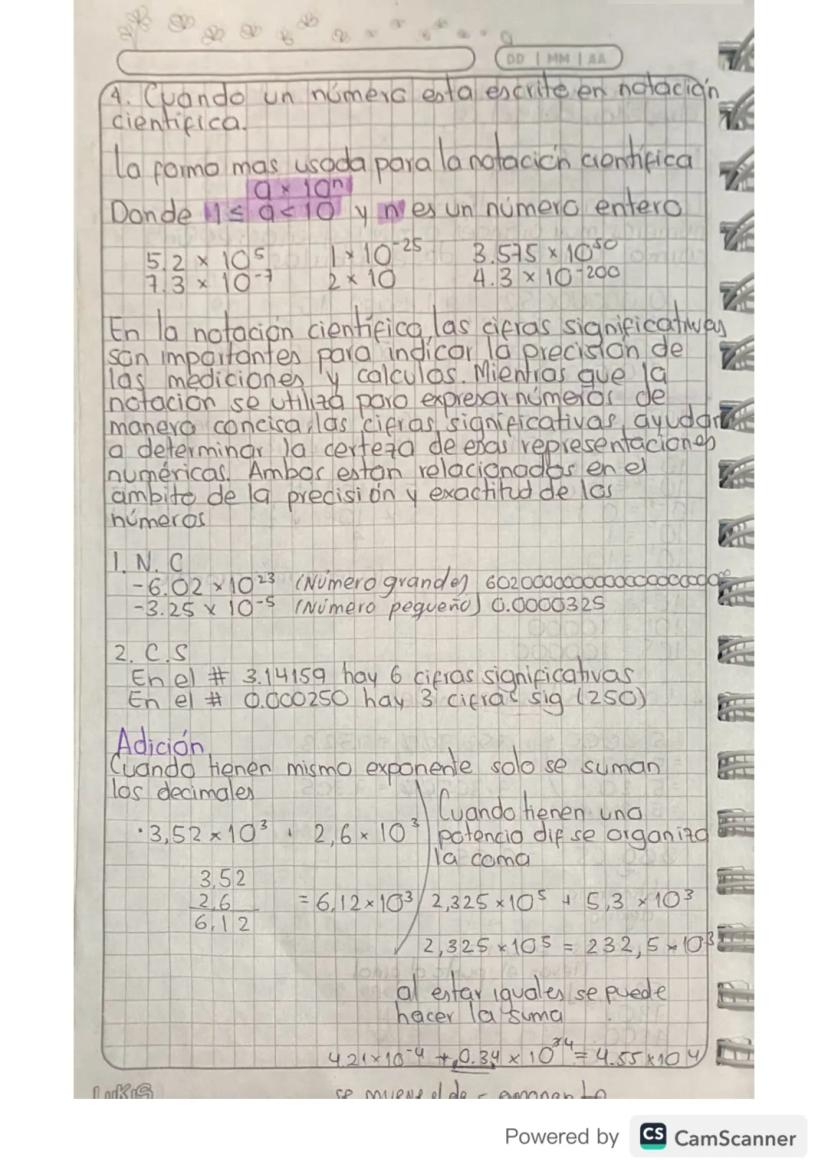 DD | MM | AA
4. Cuando un número esta escrito en notación
científica.
La forma mas usada para la notación científica
a × 10ⁿ
Donde 1 ≤ a < 10 y n es un número entero
5.2 × 10⁵ 1 × 10⁻²⁵ 3.575 × 10⁵⁰
7.3 × 10⁻⁷ 2 × 10 4.3 × 10⁻²⁰⁰
En la notación científica, las cifras significativas
son importantes para indicar la precisión de
las mediciones y calculos. Mientras que la
notación se utiliza para expresar números de
manera concisa, las cifras significativas ayudan
a determinar la certeza de esas representaciones
numéricas. Ambos estan relacionados en el
ambito de la precisión y exactitud de los
números
1. N. C
-6.02 × 10²³ (Número grande)
-3.25 × 10⁻⁵ (Número pequeño) 0.0000325
2. C.S
En el # 3.14159 hay 6 cifras significativas
En el # 0.000250 hay 3 cifras sig (250)
Adición
Cuando tienen mismo exponente solo se suman
los decimales
· 3,52 × 10³ + 2,6 × 10³
3,52
2,6
6,12
= 6,12 × 10³
Cuando tienen una
potencia dif se organiza
la coma
2,325 × 10⁵ + 5,3 × 10³
2,325 × 10⁵ = 232,5 × 10³
al estar iguales se puede
hacer la suma
4.21 × 10⁻⁴ + 0.34 × 10 = 4.55 × 10 4
se mueve el
Powered by CS CamScanner